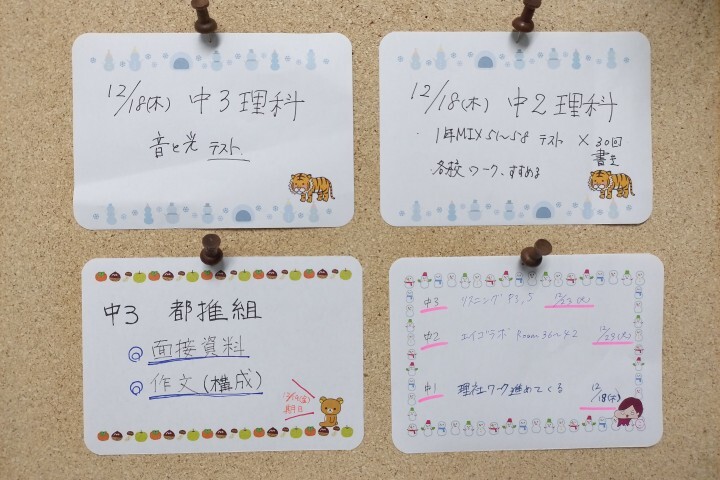 12/18(木) 中3理科
音と光 テスト
12/18(木) 中2理科
・1年MIX51〜58 テスト ×30回
書き
各校ワーク、すすめる
中3 都推組
◎ 面接資料
◎ 作文(構成)
期日
中3 リスニングP3,5 12/23(火)
中2 エイゴラボ Room36〜42 12/23(火)
中1 理社ワーク進めてくる 12/18(木)